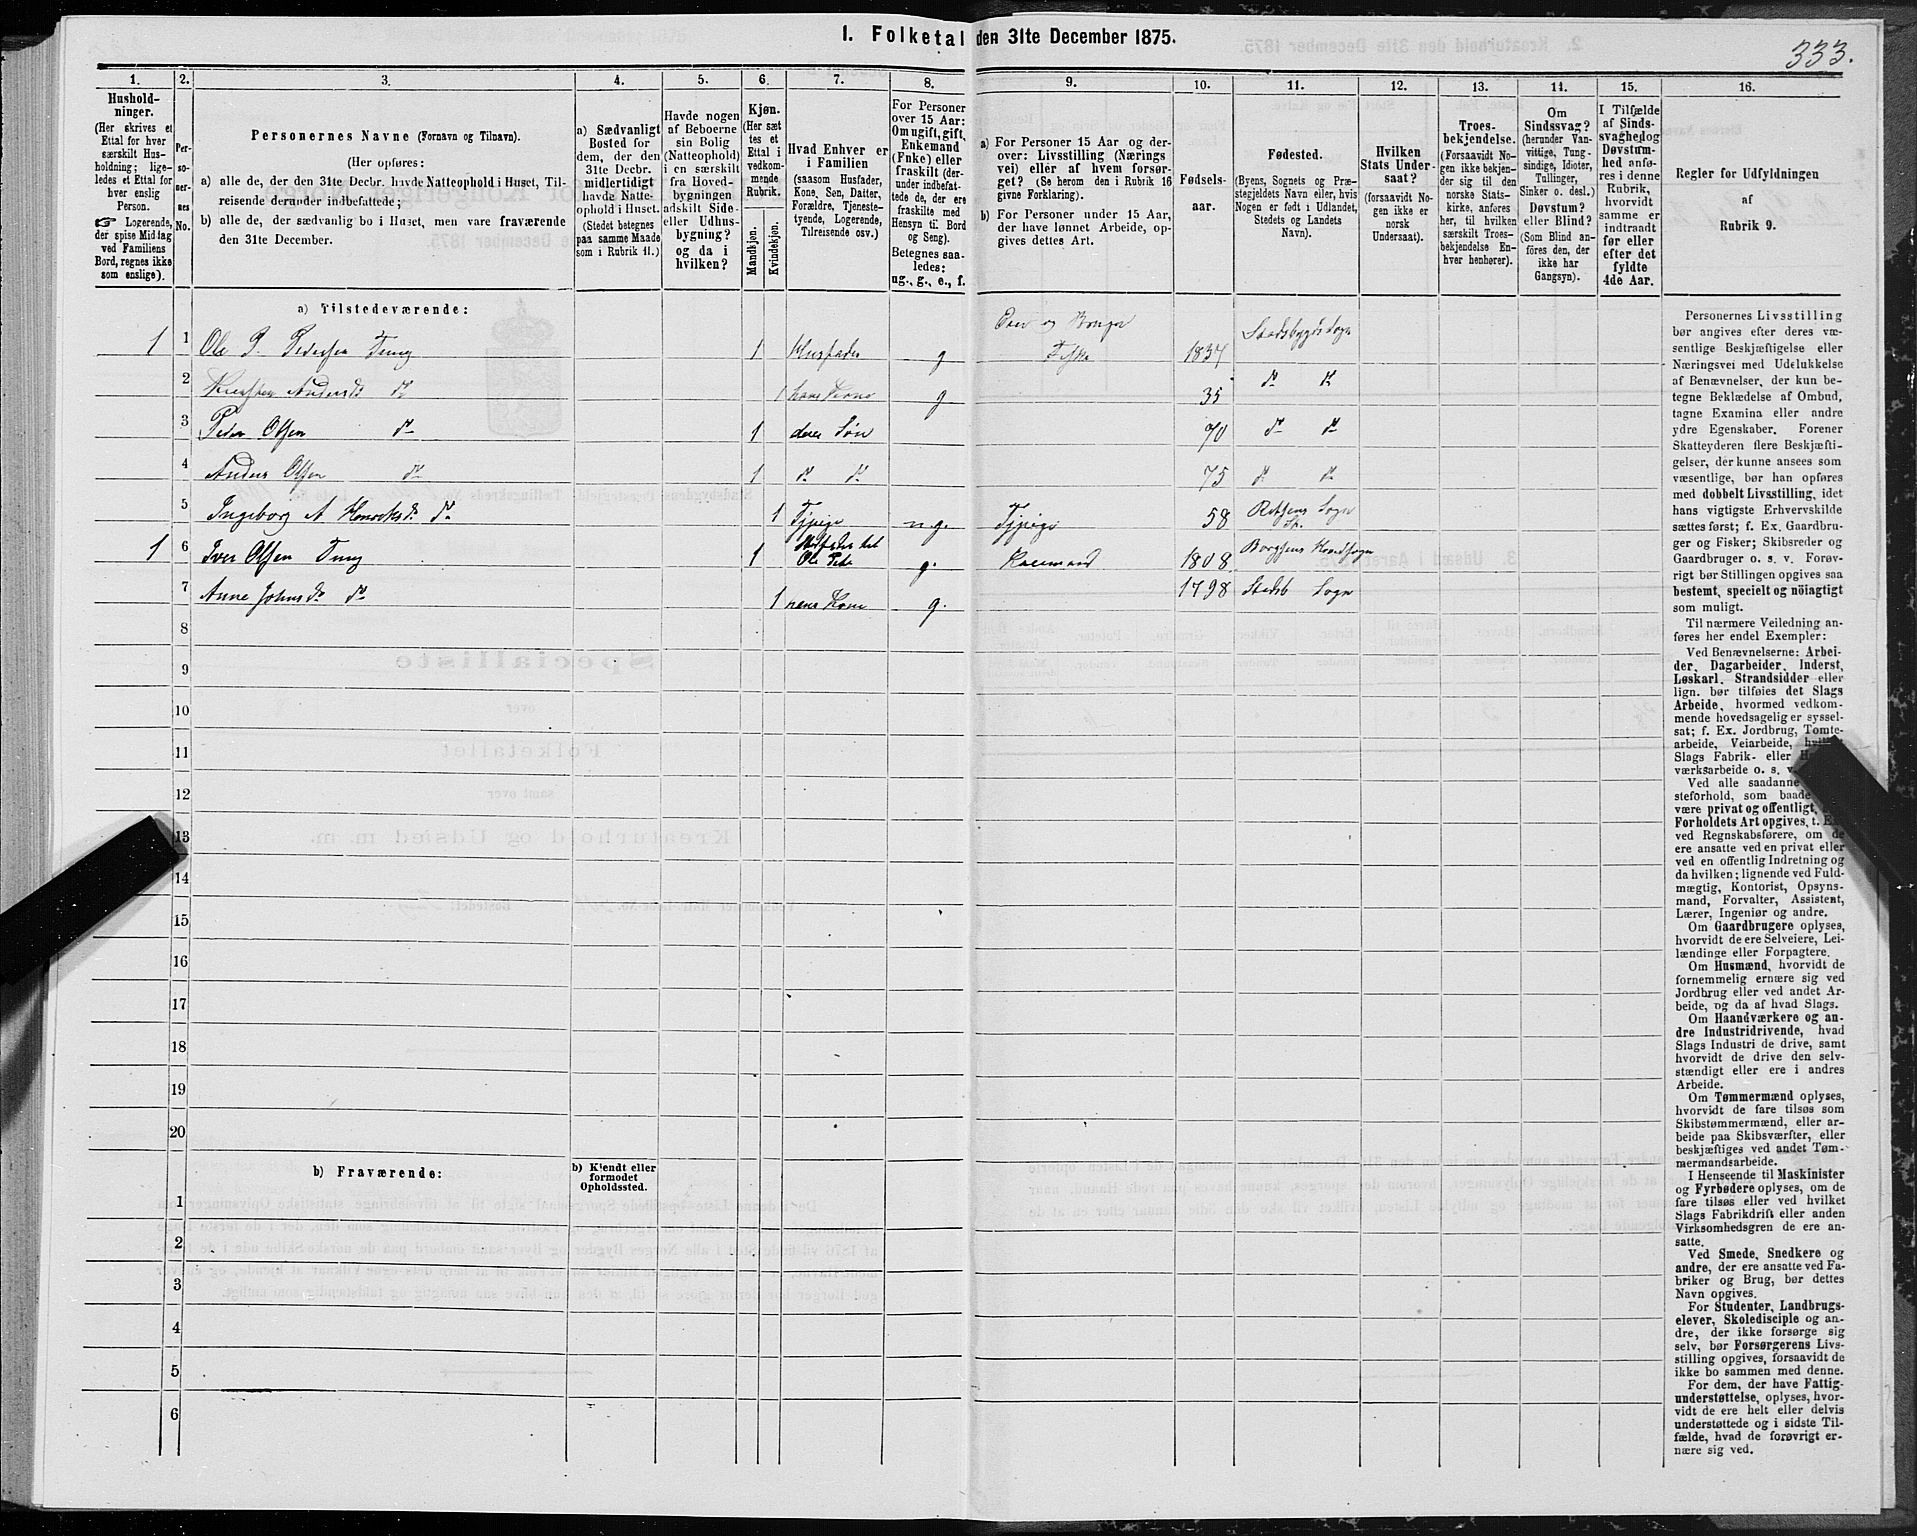 1. Folketal den 31te December 1875.
333.
1.
2.
3.
4.
5.
6.
7.
8.
9.
10.
11.
12.
13.
14.
15.
16.
Hushold-
ninger.
(Her skrives et
Ettal for hver
særskilt Hus-
holdning; lige-
ledes et Ettal for
hver enslig
Person.
☞ Logerende,
der spise Middag
ved Familiens
Bord, regnes ikke
som enslige).
Per-
so-
ner-
nes
No.
Personernes Navne (Fornavn og Tilnavn).
(Her opføres:
a) alle de, der den 31te Decbr. havde Natteophold i Huset, Til-
reisende derunder indbefattede;
b) alle de, der sædvanlig bo i Huset, men vare fraværende
den 31te December.
a) Sædvanligt
Bosted for
dem, der den
31te Decbr.
midlertidigt
havde Natte-
ophold i Huset.
(Stedet betegnes
paa samme Maade
som i Rubrik 11.)
Havde nogen
af Beboerne
sin Bolig
(Natteophold)
i en særskilt
fra Hoved-
bygningen
adskilt Side-
eller Udhus-
bygning?
og da i
hvilken?
Kjøn.
(Her sæt-
tes et
Ettal i
vedkom-
mende
Rubrik.
Mandkjøn.
Kvindekjøn.
Hvad Enhver er
i Familien
(saasom Husfader,
Kone, Søn, Datter,
Forældre, Tjeneste-
tyende, Logerende,
Tilreisende osv.)
For Personer
over 15 Aar:
Om ugift, gift,
Enkemand
(Enke) eller
fraskilt (der-
under indbefat-
tede de, der ere
fraskilte med
Hensyn til Bord
og Seng).
Betegnes saa-
ledes:
ug., g., e., f.
a) For Personer 15 Aar og der-
over: Livsstilling (Nærings
vei) eller af hvem forsør-
get? (Se herom den i Rubrik 16
givne Forklaring).
b) For Personer under 15 Aar,
der have lønnet Arbeide, op-
gives dettes Art.
Fødsels-
aar.
Fødested.
(Byens, Sognets og Præ-
stegjeldets Navn eller, hvis
Nogen er født i Udlandet,
Stedets og Landets
Navn).
Hvilken
Stats Under-
saat?
(forsaavidt No-
gen ikke er
norsk
Undersaat).
Troes-
bekjendelse.
(Forsaavidt No-
gen ikke bekjen-
der sig til den
norske Stats-
kirke, anføres
her, til hvilken
særskilt Troes-
bekjendelse En-
hver henhører).
Om
Sindssvag?
(herunder Van-
vittige, Tung-
sindige, Idioter,
Tullinger,
Sinker o. desl.)
Døvstum?
eller Blind?
(Som Blind an-
føres den, der
ikke har
Gangsyn).
I Tilfælde
af Sinds-
svaghed og
Døvstum-
hed anfø-
res i denne
Rubrik,
hvorvidt
samme er
indtraadt
før eller
efter det
fyldte
4de Aar.
Regler for Udfyldningen
af
Rubrik 9.
a) Tilstedeværende:
1 1 Ole P. Pedersen Tung 1 Husfader g Eier og Bruger Fisker 1834 Stadsbygds Sogn
2 Kirsten Andersd do 1 hans Kone g 35 do do
3 Peder Olsen do 1 deres Søn 70 do do
4 Anders Olsen do 1 do do 75 do do
5 Ingeborg A Henriksd do 1 Tjpige ug. Tjpige 58 Sogn
1 6 Iver Olsen Tung 1 til Ole g. Kaarmand 1808
7 Anne Johnsd do 1 hans Kone g. 1798 Stadsb Sogn
8
9
10
11
12
13
14
15
16
17
18
19
20
b) Fraværende:
b) Kjendt eller
formodet
Opholdssted.
1
2
3
4
5
6
Personernes Livsstilling
bør angives efter deres væ-
sentlige Beskjæftigelse eller
Næringsvei med Udelukkelse
af Benævnelser, der kun be-
tegne Beklædelse af Ombud,
tagne Examina eller andre
ydre Egenskaber. Forener
Skatteyderen flere Beskjæfti-
gelser, der kunne ansees som
væsentlige, bør han opføres
med dobbelt Livsstilling, idet
hans vigtigste Erhvervskilde
sættes først; f. Ex. Gaardbru-
ger og Fisker; Skibsreder og
Gaardbruger o. s. v. Forøv-
rigt bør Stillingen opgives saa
bestemt, specielt og nöiagtigt
som muligt.
Til nærmere Veiledning an-
føres her endel Exempler:
Ved Benævnelserne: Arbei-
der, Dagarbeider, Inderst,
Løskarl, Strandsidder eller
lign. bør tilføies det Slags
Arbeide, hvormed vedkom-
mende hovedsagelig er syssel-
sat; f. Ex. Jordbrug, Tomte-
arbeide, Veiarbeide, hvilket
Slags Fabrik- eller
værksarbeide o. s. v.
Ved alle saadanne
steforhold, som baade
være privat og offentligt,
Forholdets Art opgives, t. Ex.
ved Regnskabsførere, om de
ere ansatte ved en privat eller
ved en offentlig Indretning og
da hvilken; lignende ved Fuld-
mægtig, Kontorist, Opsyns-
mand, Forvalter, Assistent,
Lærer, Ingeniør og andre.
Om Gaardbrugere oplyses,
hvorvidt de ere Selveiere, Lei-
lændinge eller Forpagtere.
Om Husmænd, hvorvidt de
fornemmelig ernære sig ved
Jordbrug eller ved andet Ar-
beide, og da af hvad Slags.
Om Haandværkere og an-
dre Industridrivende, hvad
Slags Industri de drive, samt
hvorvidt de drive den selv-
stændigt eller ere i andres
Arbeide.
Om Tømmermænd oplyses,
hvorvidt de fare tilsøs som
Skibstømmermænd, eller ar-
beide paa Skibsværfter, eller
beskjæftiges ved andet Tøm-
mermandsarbeide.
I Henseende til Maskinister
og Fyrbødere oplyses, om de
fare tilsøs eller ved hvilket
Slags Fabrikdrift eller anden
Virksomhedsgren de ere an-
satte.
Ved Smede, Snedkere og
andre, der ere ansatte ved Fa-
briker og Brug, bør dettes
Navn opgives.
For Studenter, Landbrugs-
elever, Skoledisciple og an-
dre, der ikke forsørge sig
selv, bør Forsørgerens Livs-
stilling opgives, forsaavidt de
ikke bo sammen med denne.
For dem, der have Fattig-
understøttelse, oplyses, hvor-
vidt de ere helt eller delvis
understøttede og i sidste Til-
fælde, hvad de forøvrigt er-
nære sig ved.